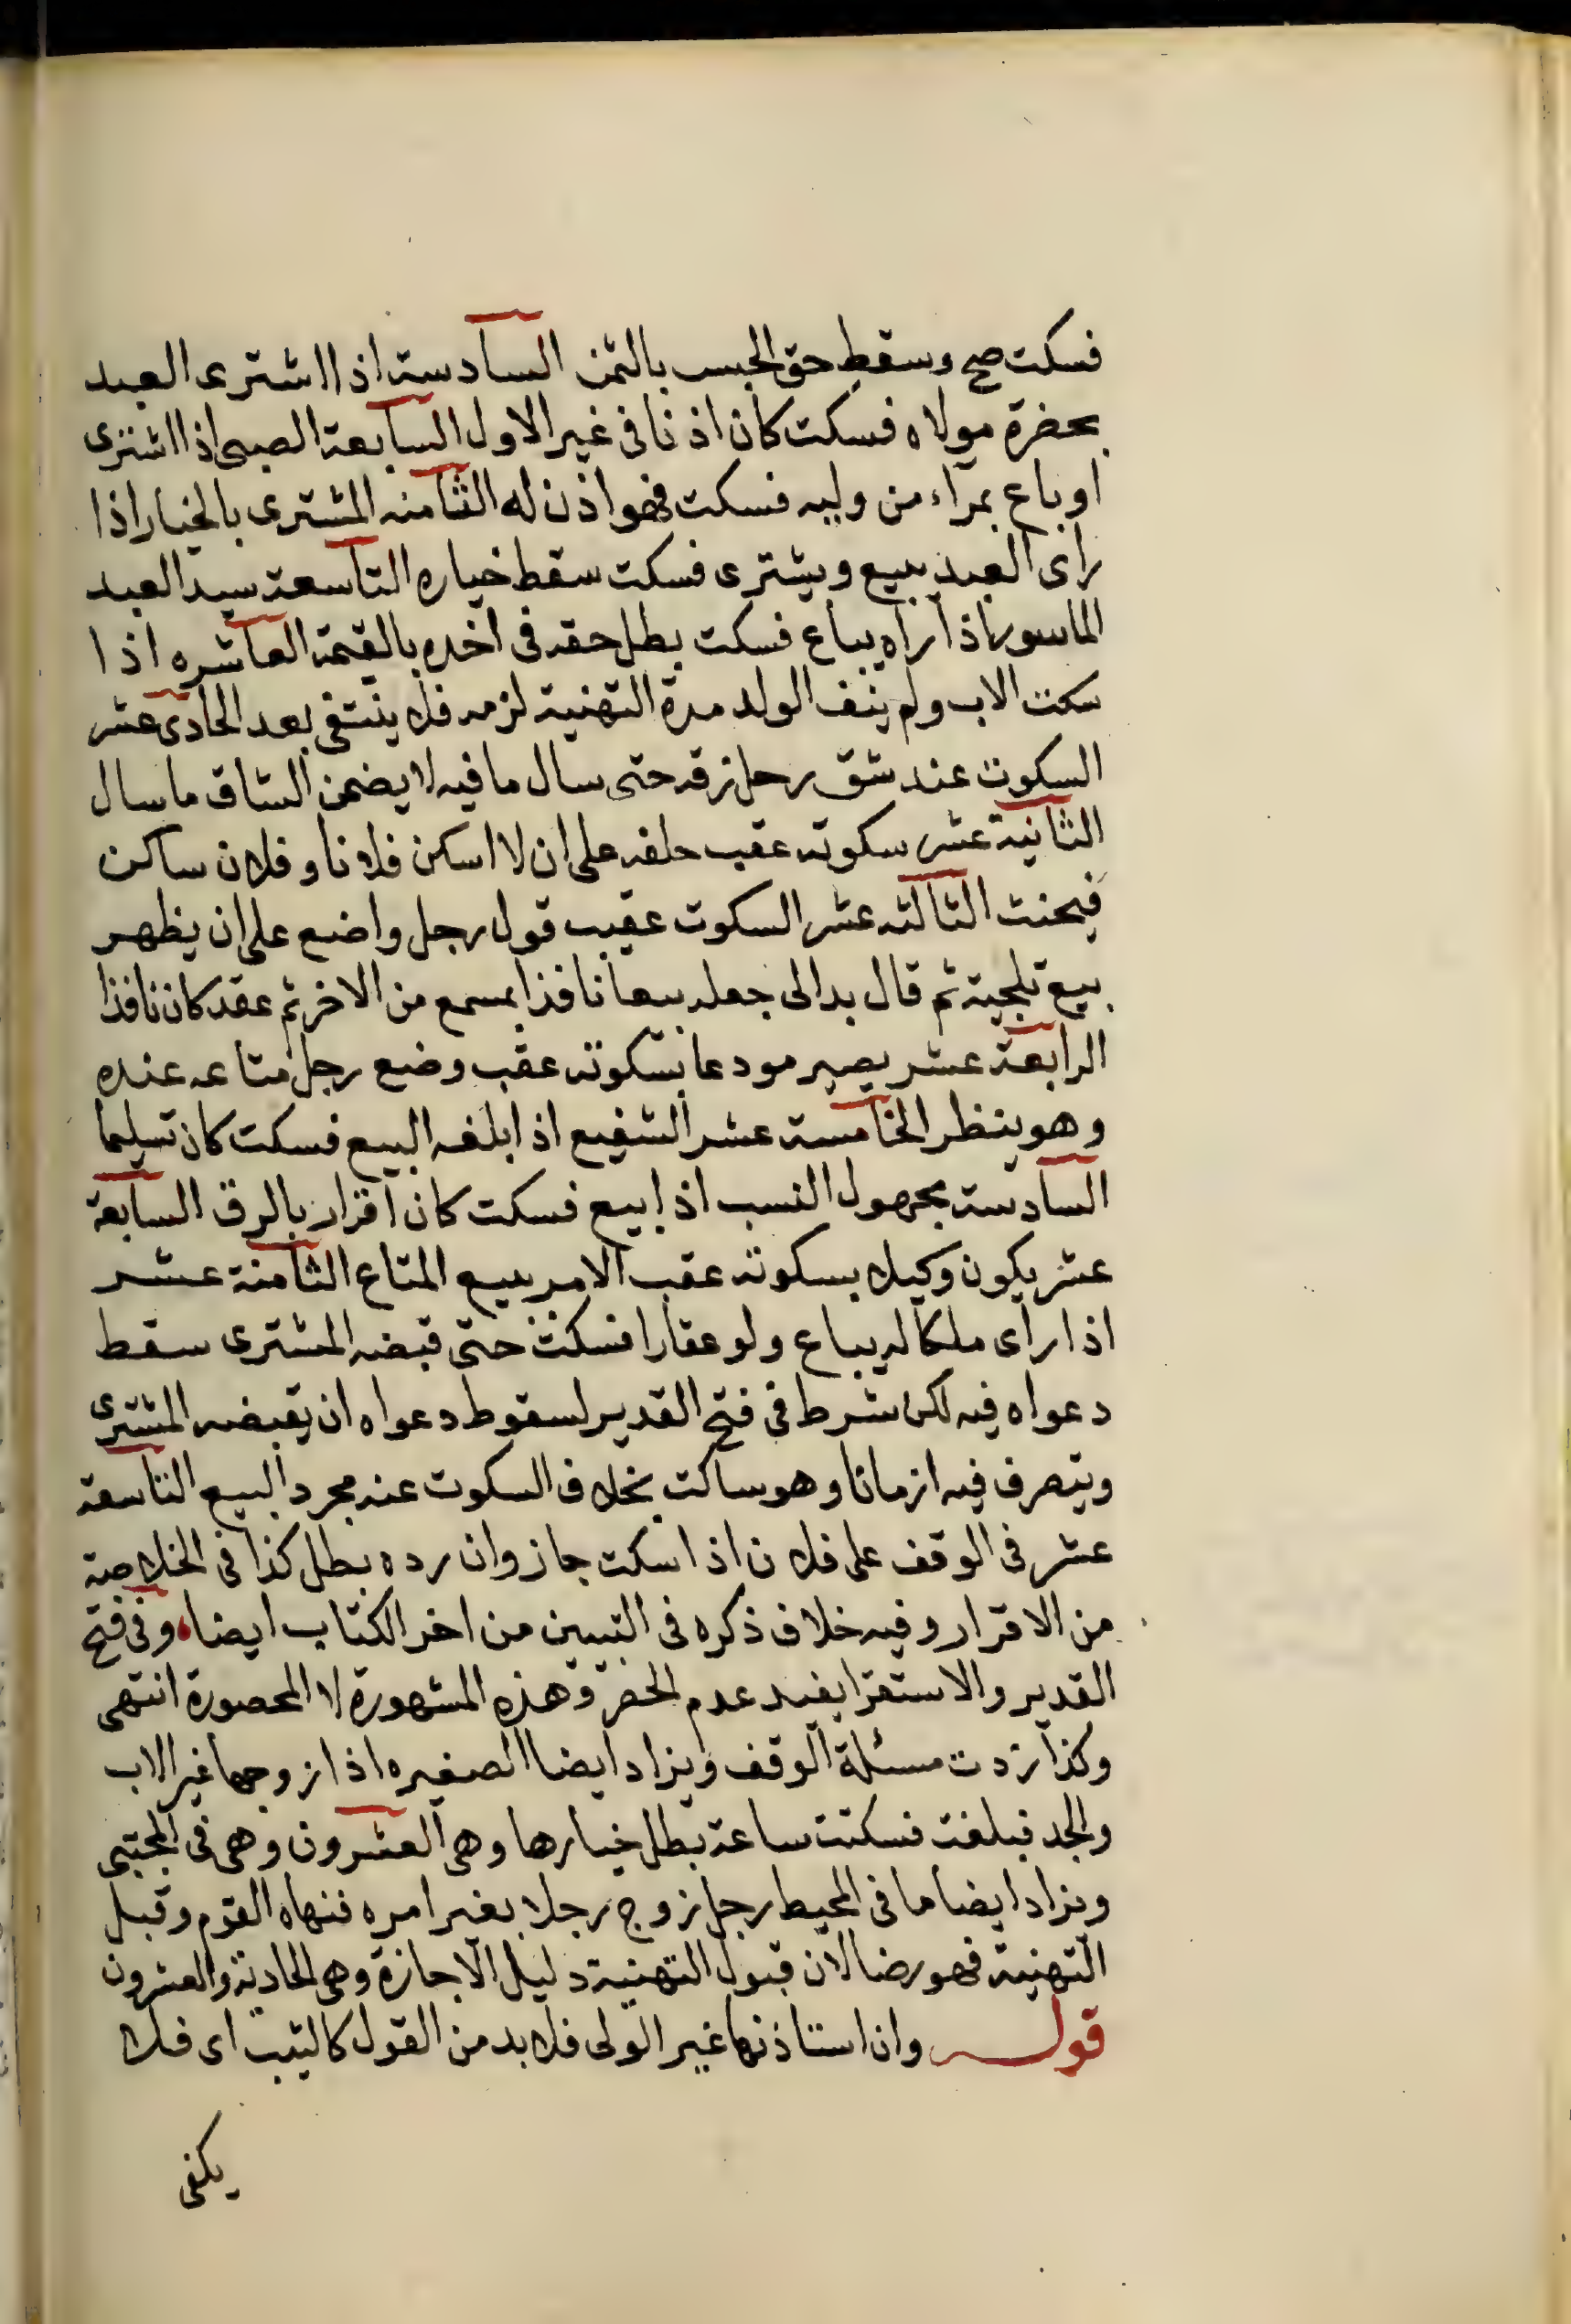 فسكت صح وسقط حق الحبس بالثمن السادسة اذا اشترى العبد
بحضرة مولاه فسكت كان اذنا فى غير الاول السابعة الصبى اذا اشترى
او باع بمراء من وليه فسكت فهو اذن له الثامنه المشترى بالخيار اذا
راى العبد يبيع ويشترى فسكت سقط خياره التاسعة سيد العبد
الماسور اذا راه يباع فسكت بطل حقه فى اخده بالقيمة العاشره اذا
سكت الاب ولم ينف الولد مدة التهنية لزمه فلا ينتفى بعد الحادى عشر
السكوت عند شق رجل زقه حتى سال ما فيه لا يضمن الشاق ما سال
الثانية عشر سكوته عقب حلفه على ان لا اسكن فلانا وفلان ساكن
فيحنث الثالثه عشر السكوت عقيب قول رجل واضع على ان يظهر
بيع تلجية ثم قال بدالى جعله بيعا نافذا بمسمع من الاخر ثم عقد كان نافذا
الرابعة عشر يصير مودعا بسكوته عقب وضع رجل متاعه عنده
وهو ينظر الخامسة عشر الشفيع اذا بلغه البيع فسكت كان تسليما
السادسة مجهول النسب اذا بيع فسكت كان اقرار بالرق السابعة
عشر يكون وكيلا بسكوته عقب الامر ببيع المتاع الثامنة عشر
اذا راى ملكا له يباع ولو عقارا فسكت حتى قبضه المشترى سقط
دعواه فيه لكن شرط فى فتح القدير لسقوط دعواه ان يقبضه المشترى
ويتصرف فيه ازمانا وهو ساكت بخلاف السكوت عند مجرد البيع التاسعة
عشر فى الوقف على فلان اذا سكت جاز وان رده بطل كذا فى الخلاصة
من الاقرار وفيه خلاف ذكره فى التبيين من اخر الكتاب ايضا، وفى فتح
القدير والاستقرا يفيد عدم الحصر وهذه المشهورة لا المحصورة انتهى
وكذا زدت مسئلة الوقف ويزاد ايضا الصغيره اذا زوجها غير الاب
والجد فبلغت فسكتت ساعة بطل خيارها وهى العشرون وهى فى المجتبى
ويزاد ايضا ما فى المحيط رجل زوج رجلا بغير امره فنهاه القوم وقبل
التهنية فهو رضا لان قبول التهنية دليل الاجازة وهى الحادية والعشرون
قوله وان استاذنها غير الولى فلا بد من القول كالثيب اى فلا
يكفى